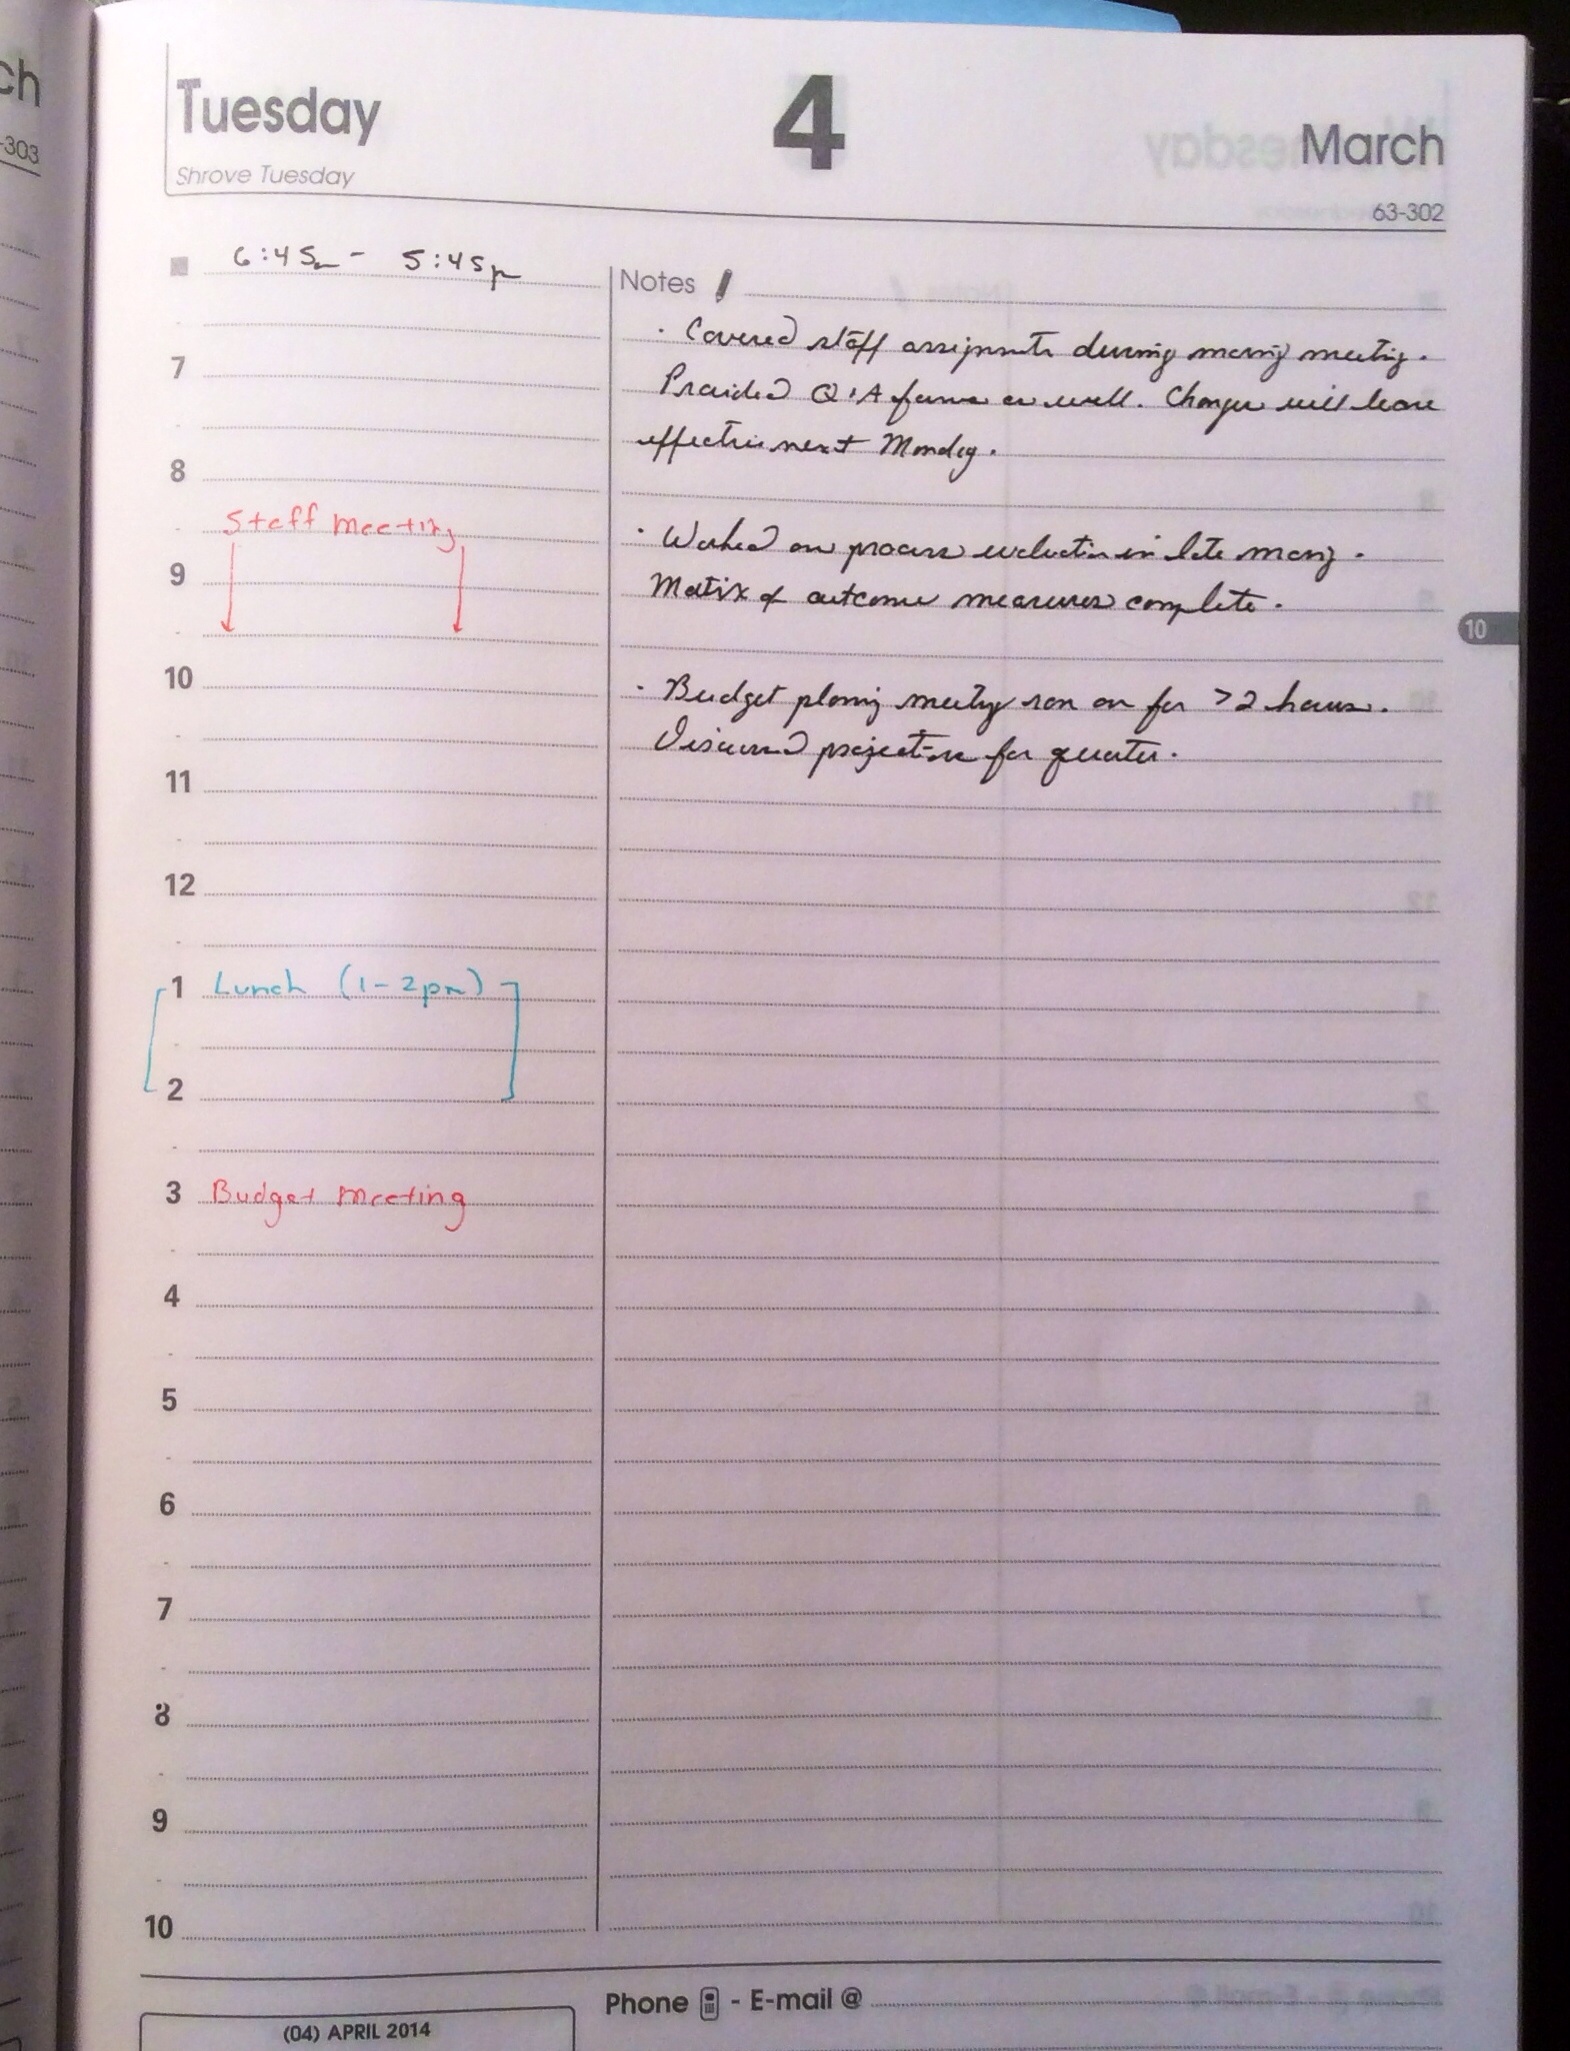 ch
-303
Tuesday
4
March
Shrove Tuesday
63-302
6:45a - 5:45p
Notes
· Covered staff assignments during morning meeting.
7
Provided Q & A forum as well. Changes will have
effective next Monday.
8
Staff Meeting
· Worked on process evaluation in late morning.
9
Matrix of outcome measures complete.
10
10
· Budget planning meeting ran on for >2 hours.
Discussed projections for quarter.
11
12
1 Lunch (1-2pm)
2
3 Budget Meeting
4
5
6
7
8
9
10
Phone - E-mail @
(04) APRIL 2014